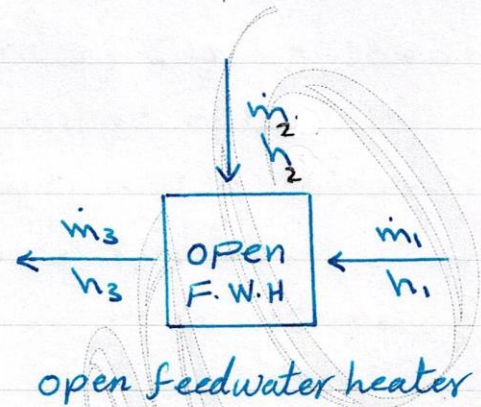 ṁ2
h2
ṁ3
h3
open
F.W.H
ṁ1
h1
open feedwater heater